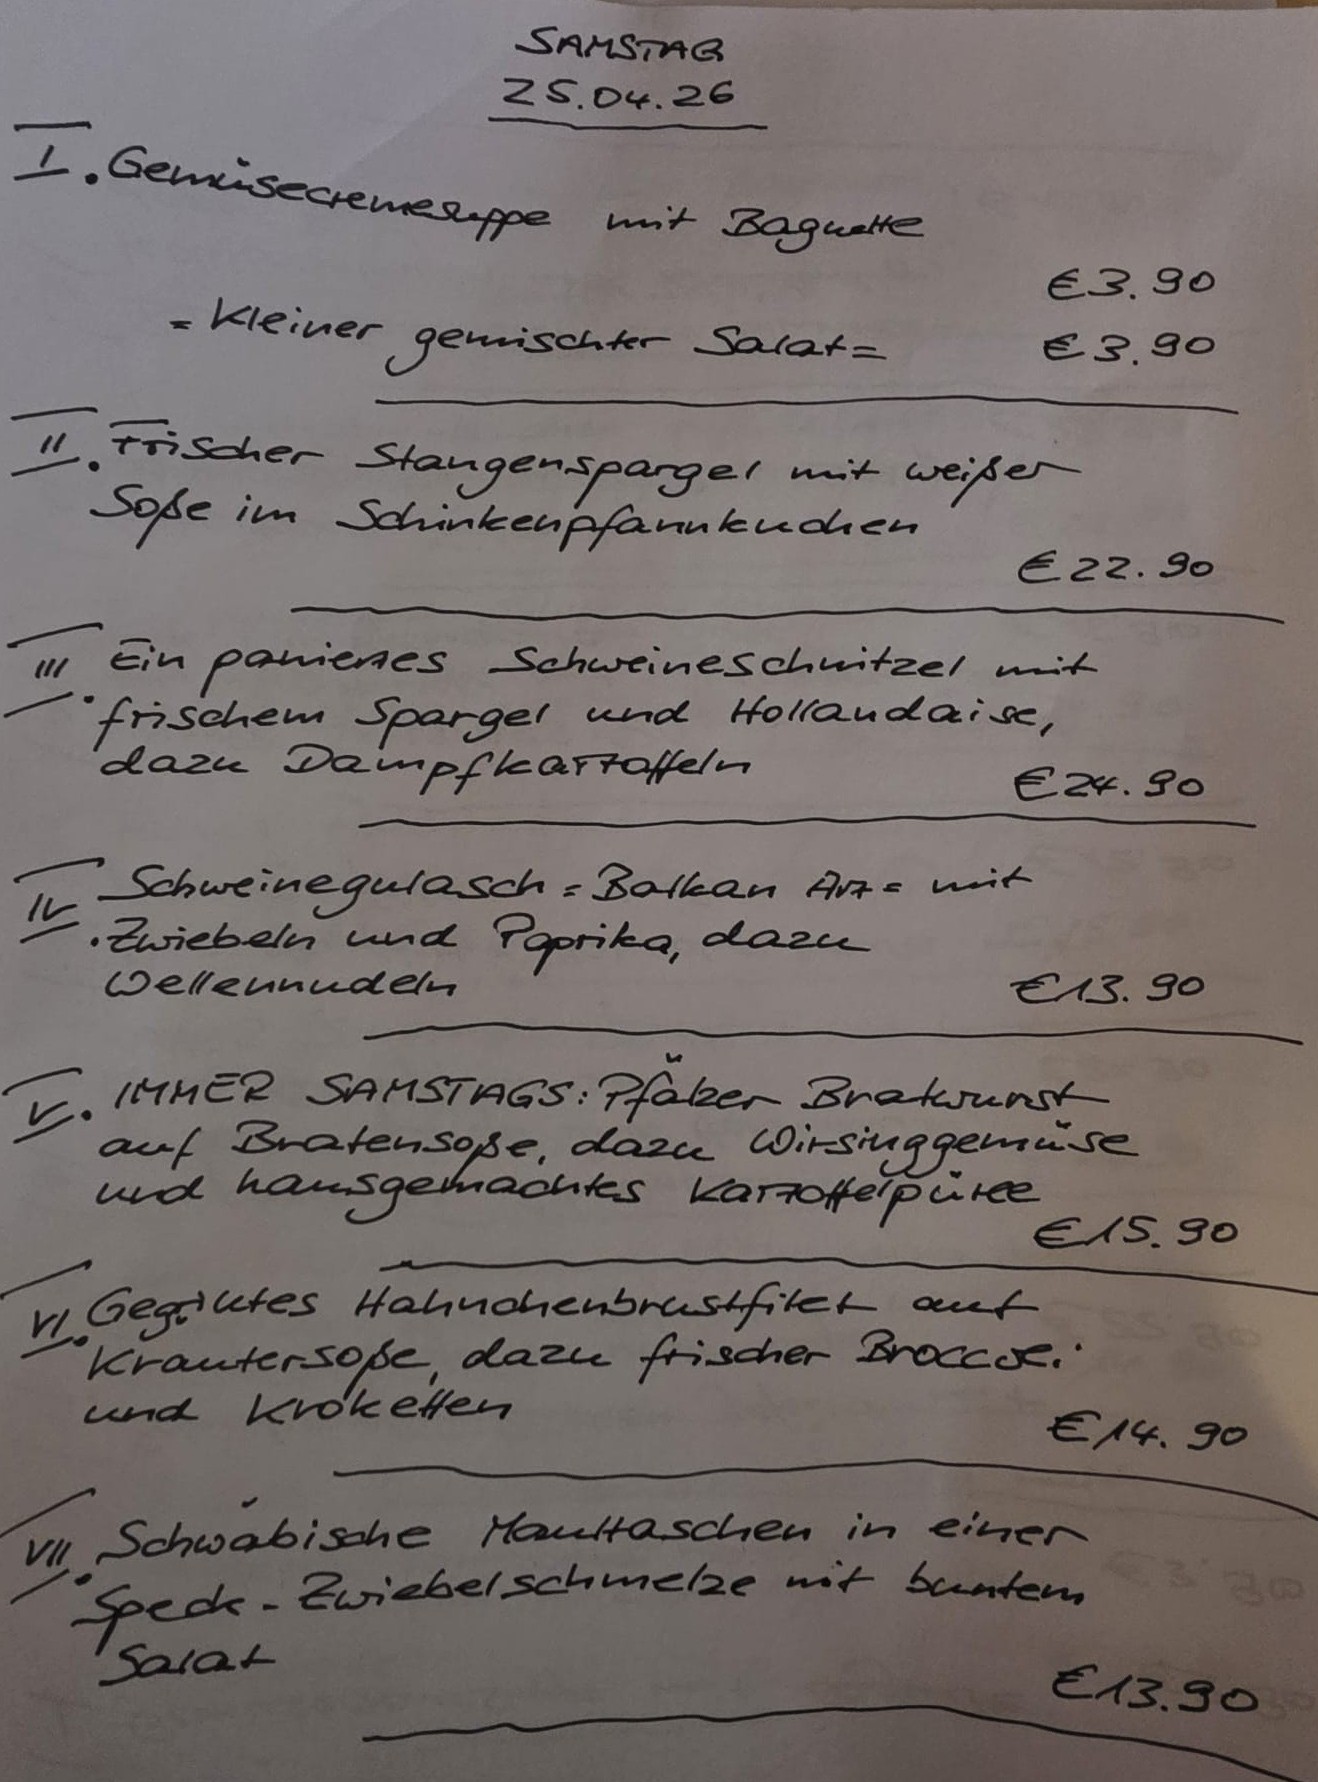 SAMSTAG
25.04.26
I. Gemüsecremesuppe mit Baguette
€3.90
= Kleiner gemischter Salat = €3.90
II. Frischer Stangenspargel mit weißer
Soße im Schinkenpfannkuchen
€22.90
III. Ein paniertes Schweineschnitzel mit
frischem Spargel und Hollandaise,
dazu Dampfkartoffeln €24.90
IV. Schweinegulasch = Balkan Art = mit
Zwiebeln und Paprika, dazu
Wellennudeln €13.90
V. IMMER SAMSTAGS: Pfälzer Bratwurst
auf Bratensoße, dazu Wirsinggemüse
und hausgemachtes Kartoffelpüree
€15.90
VI. Gegrilltes Hähnchenbrustfilet auf
Kräutersoße, dazu frischer Broccoli
und Kroketten €14.90
VII. Schwäbische Maultaschen in einer
Speck-Zwiebelschmelze mit buntem
Salat
€13.90